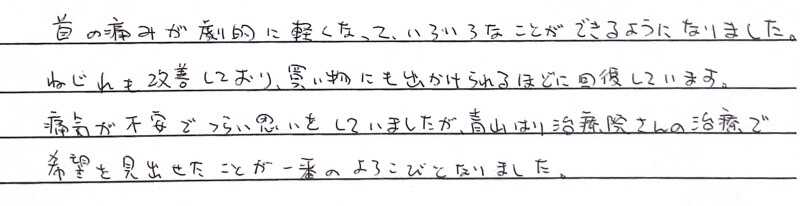 首の痛みが劇的に軽くなって、いろいろなことができるようになりました。
ねじれも改善しており、買い物にも出かけられるほどに回復しています。
病気が不安でつらい思いをしていましたが、青山はり治療院さんの治療で
希望を見出せたことが一番のよろこびとなりました。